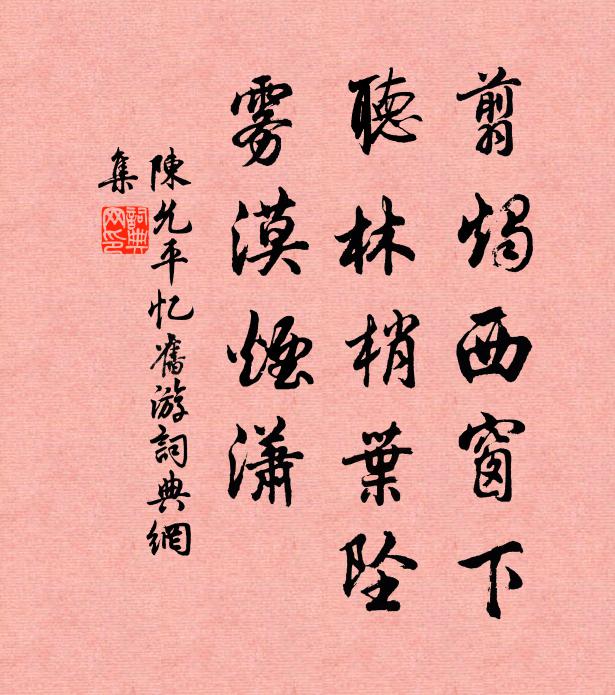 翦燭西窗下
聽林梢葉墜
雾漠煙瀟
陳允平忆舊游詞典網
集
詞典网印